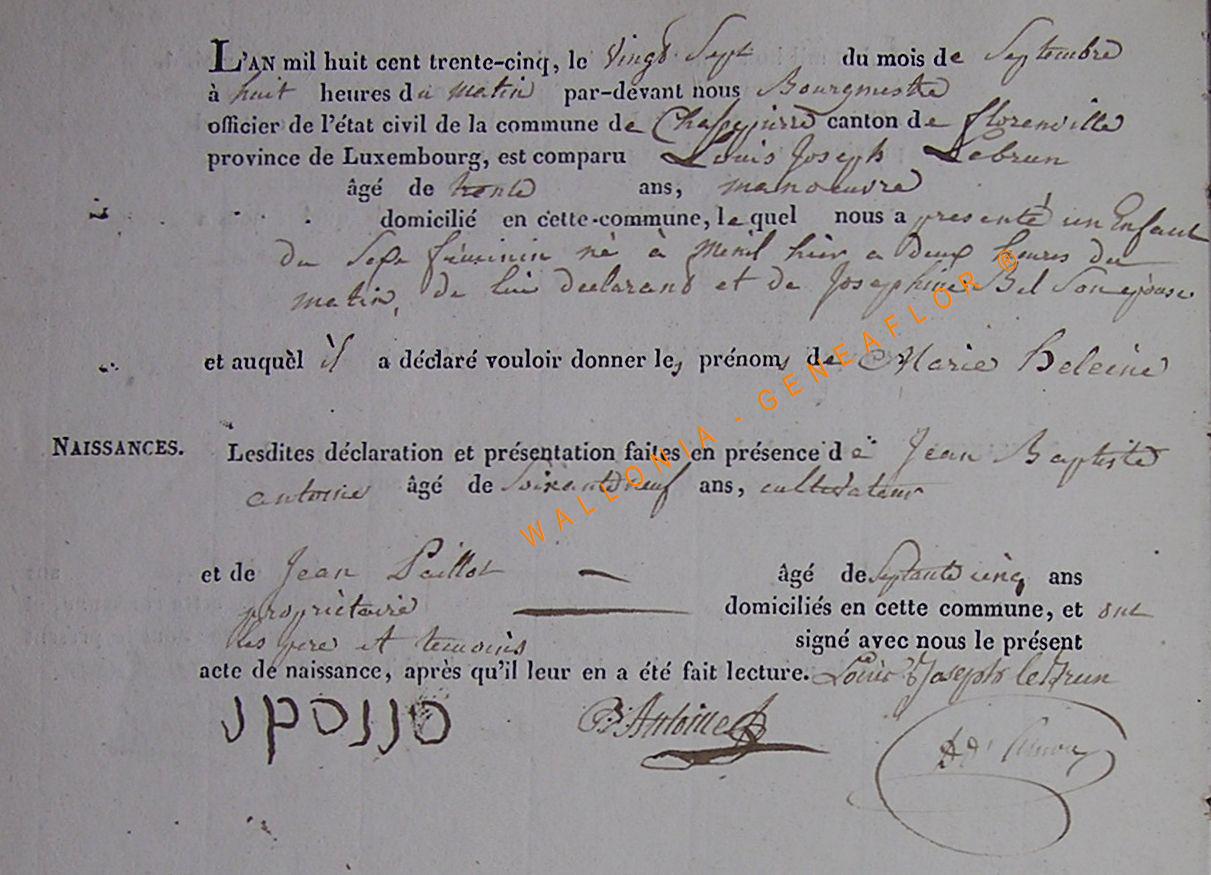 L'AN mil huit cent trente-cinq, le Vingt Sept du mois de Septembre
à huit heures du matin par-devant nous Bourgmestre
officier de l'état civil de la commune de Chassepierre canton de florenville
province de Luxembourg, est comparu Louis Joseph Lebrun
âgé de trente ans, manoeuvre
domicilié en cette commune, lequel nous a presenté un Enfant
du Sexe féminin né à Menil hier a Deux heures du
matin, de lui declarant et de Josephine Bel Son épouse
et auquel il a déclaré vouloir donner les prénoms de Marie heleine
NAISSANCES.
Lesdites déclaration et présentation faites en présence de Jean Baptiste
antoine âgé de Soixante neuf ans, cultivateur
et de Jean Paillot âgé de Septante cinq ans
propriétaire domiciliés en cette commune, et ont
les pere et temoins signé avec nous le présent
acte de naissance, après qu'il leur en a été fait lecture. Louis Joseph lebrun
B. Antoine
WALLONIA - GENEAFLOR ®